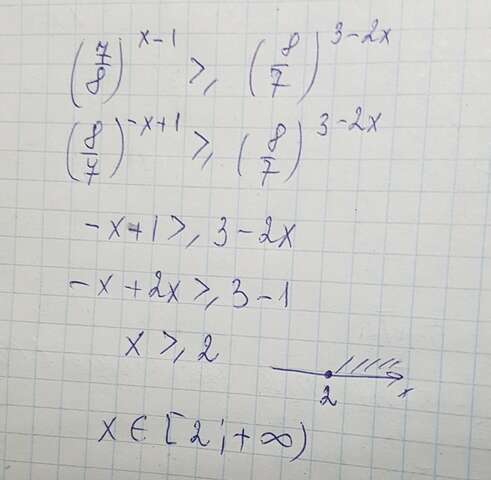 (7/8)^(x-1) ≥ (8/7)^(3-2x)
(8/7)^(-x+1) ≥ (8/7)^(3-2x)
-x+1 ≥ 3-2x
-x+2x ≥ 3-1
x ≥ 2
2 x
x ∈ [2; +∞)